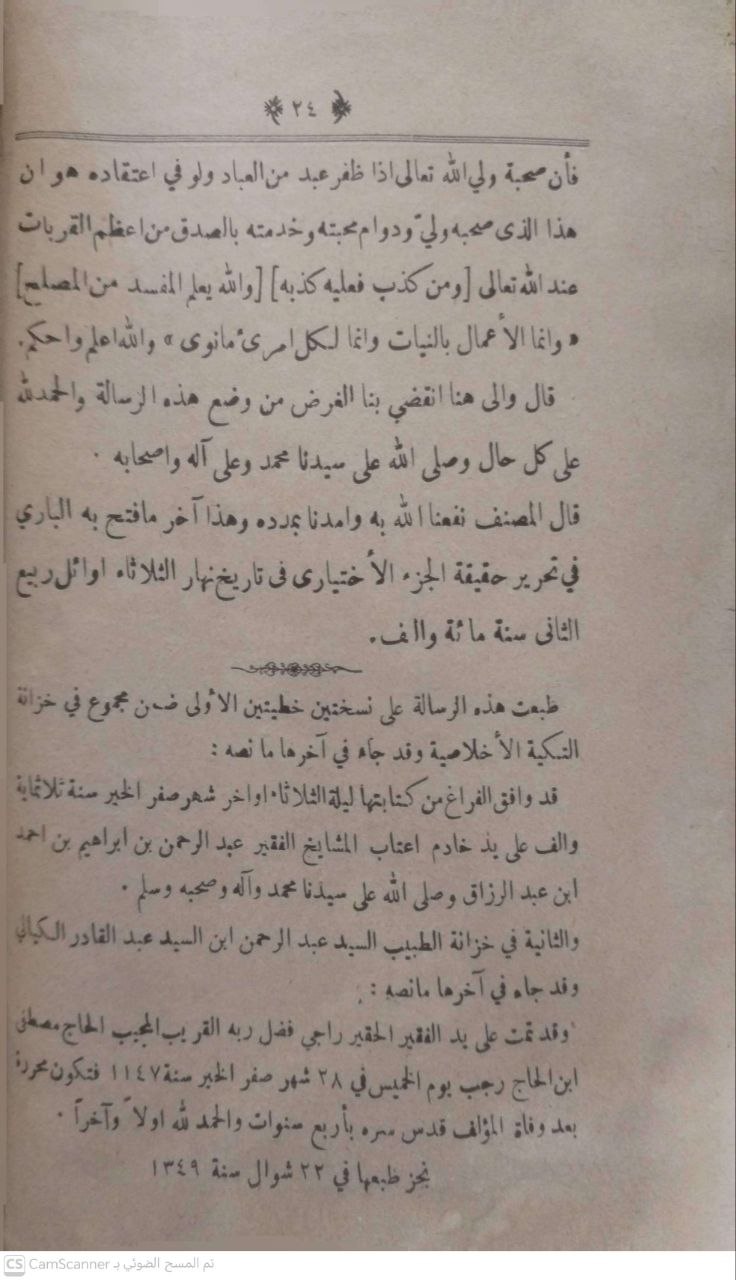 ﴿ ٢٤ ﴾
فأن صحبة ولي الله تعالى اذا ظفر عبد من العباد ولو في اعتقاده هو ان
هذا الذى صحبه وليّ ودوام محبته وخدمته بالصدق من اعظم القربات
عند الله تعالى [ومن كذب فعليه كذبه] [والله يعلم المفسد من المصلح]
« وانما الأعمال بالنيات وانما لكل امرئ مانوى » والله اعلم واحكم.
قال والى هنا انقضي بنا الغرض من وضع هذه الرسالة والحمدلله
على كل حال وصلى الله على سيدنا محمد وعلى آله واصحابه .
قال المصنف نفعنا الله به وامدنا بمدده وهذا آخر مافتح به الباري
في تحرير حقيقة الجزء الأختيارى فى تاريخ نهار الثلاثاء اوائل ربيع
الثانى سنة مائة والف.
طبعت هذه الرسالة على نسختين خطيتين الأولى ضمن مجموع في خزانة
التكية الأخلاصية وقد جاء في آخرها ما نصه :
قد وافق الفراغ من كتابتها ليلة الثلاثاء اواخر شهر صفر الخير سنة ثلاثماية
والف على يد خادم اعتاب المشايخ الفقير عبد الرحمن بن ابراهيم بن احمد
ابن عبد الرزاق وصلى الله على سيدنا محمد وآله وصحبه وسلم .
والثانية في خزانة الطبيب السيد عبد الرحمن ابن السيد عبد القادر الكيالي
وقد جاء في آخرها مانصه :
وقد تمت على يد الفقير الحقير راجي فضل ربه القريب المجيب الحاج مصطفى
ابن الحاج رجب يوم الخميس في ٢٨ شهر صفر الخير سنة ١١٤٧ فتكون محررة
بعد وفاة المؤلف قدس سره بأربع سنوات والحمد لله اولاً وآخراً .
نجز طبعها في ٢٢ شوال سنة ١٣٤٩
CS CamScanner تم المسح الضوئي بـ